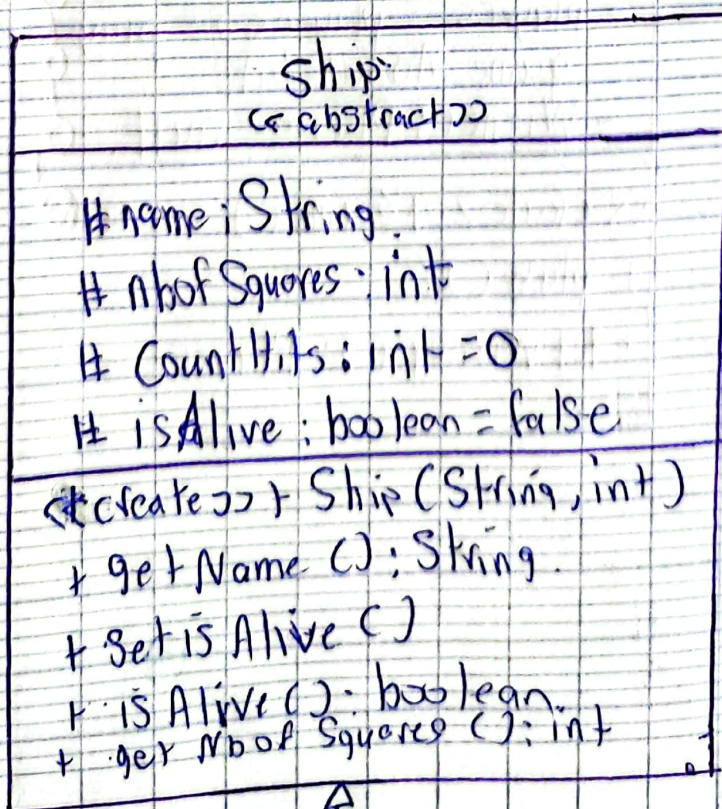 Ship
<<abstract>>
# name : String.
# nbofSquares : int
# CountHits : int = 0
# isAlive : boolean = false
<<create>> + Ship (String, int)
+ getName () : String.
+ SetisAlive ()
+ isAlive () : boolean.
+ getNbofSquares () : int